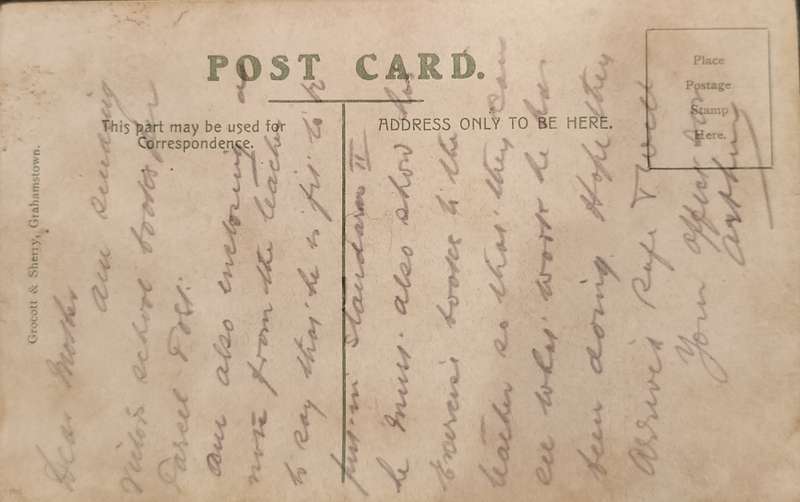 POST CARD.
This part may be used for
Correspondence.
ADDRESS ONLY TO BE HERE.
Place
Postage
Stamp
Here.
Grocott & Sherry, Grahamstown.
Dear Mother
Am sending
school books per
Parcel Post.
Am also enclosing a
note from the teacher
to say that he is fit to be
put in Standard II
he must also show his
Exercise books to the
teacher so that they can
see what work he has
been doing. Hope they
arrive safe & well
Your affect son